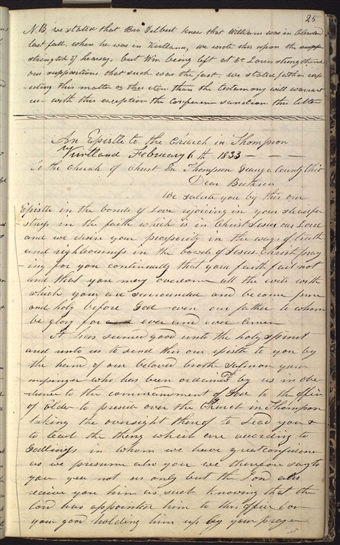 25
N.B. we stated that Bro Gilbert knew that William was in
last fall when he was in Kirtland, we wrote this upon the
strength of hearsay, but Wm being left at St Louis strengthened
our suppositions that such was the fact. we stated further
this matter or this item than the testamony will warrant
us with this exception the conference sanction this letter
An Epistle to the Church in Thompson
Kirtland February 6th 1833
To the church of Christ in Thompson Geauga County Ohio
Dear Bretheren
We salute you by this our
Epistle in the bonds of Love rejoicing in your steadfast
in the faith which is in Christ Jesus our Lord
and we desire your prosperity in the ways of truth
and righteousness in the bowels of Jesus Christ pray
ing for you continually that your faith fail not
and that you may overcome all the evils with
which you are surrounded and become pure
and holy before God even our father to whom
be glory for ever and ever Amen
It has seemed good unto the holy spirit
and unto us to send this our epistle to you by
the hand of our beloved brother Salmon your
messenger who has been ordained by us in obe
dience to the commandment of God to the office
of Elder to preside over the Church in Thompson
taking the oversight thereof to lead you &
to teach the things which are according to
Godliness in whom we have great confidence
as we presume also you we therefore say to
you yea not us only but the Lord also
receive you him as such knowing that the
Lord has appointed him to this office for
your good holding him up by your prayer